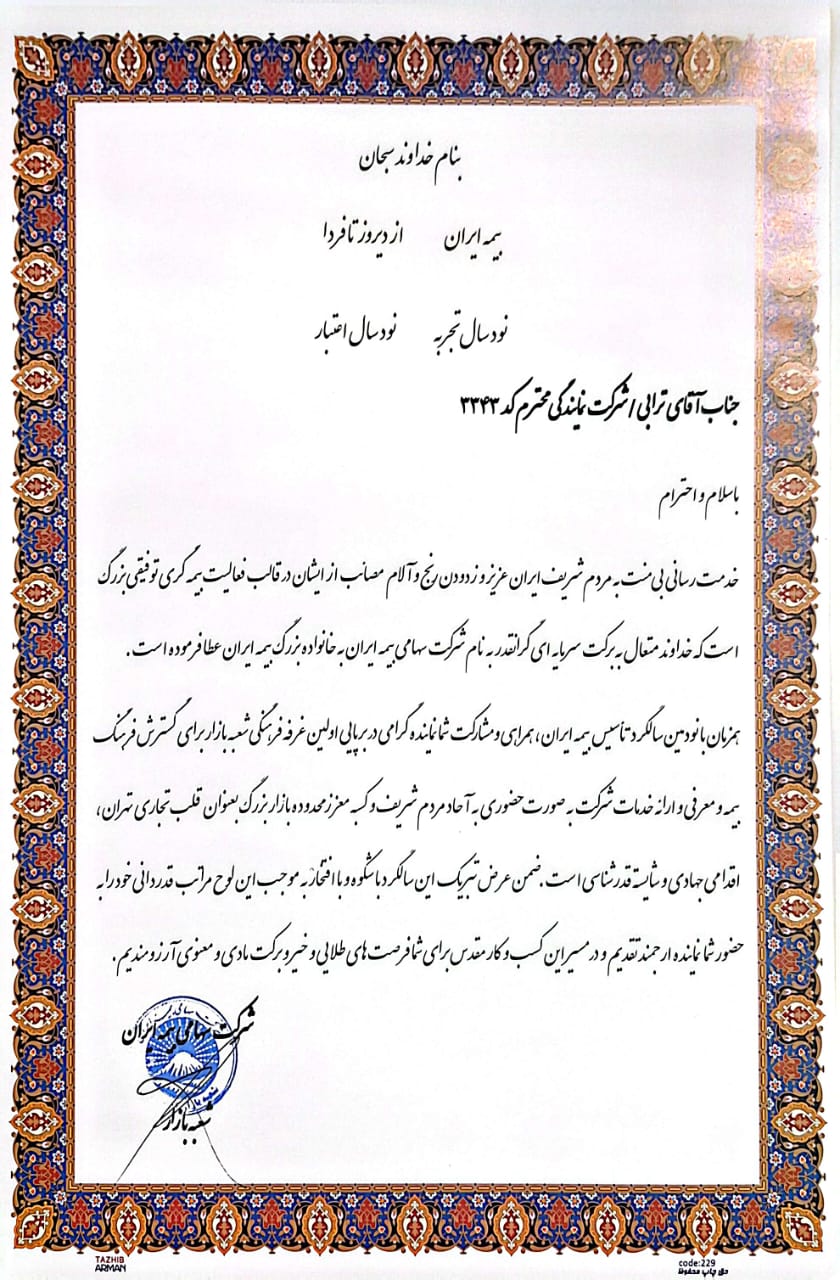 بنام خداوند سبحان
بیمه ایران از دیروز تا فردا
نود سال تجربه نود سال اعتبار
جناب آقای ترابی / شرکت نمایندگی محترم کد ۳۳۴۳
باسلام و احترام
خدمت رسانی بی منت به مردم شریف ایران عزیز و زدودن رنج و آلام مصائب از ایشان در قالب فعالیت بیمه گری توفیقی بزرگ
است که خداوند متعال به برکت سرمایه ای گرانقدر به نام شرکت سهامی بیمه ایران به خانواده بزرگ بیمه ایران عطا فرموده است.
همزمان با نودمین سالگرد تأسیس بیمه ایران، همراهی و مشارکت شما نماینده گرامی در برپایی اولین غرفه فرهنگی شعبه بازار برای گسترش فرهنگ
بیمه و معرفی و ارائه خدمات شرکت به صورت حضوری به آحاد مردم شریف و کسبه معزز محدوده بازار بزرگ بعنوان قلب تجاری تهران،
اقدامی جهادی و شایسته قدرشناسی است. ضمن عرض تبریک این سالگرد باشکوه و با افتخار به موجب این لوح مراتب قدردانی خود را به
حضور شما نماینده ارجمند تقدیم و در مسیر این کسب و کار مقدس برای شما فرصت های طلایی و خیر و برکت مادی و معنوی آرزومندیم.
شرکت سهامی بیمه ایران
شعبه بازار
TAZHIB
ARMAN
code:229
حق چاپ محفوظ